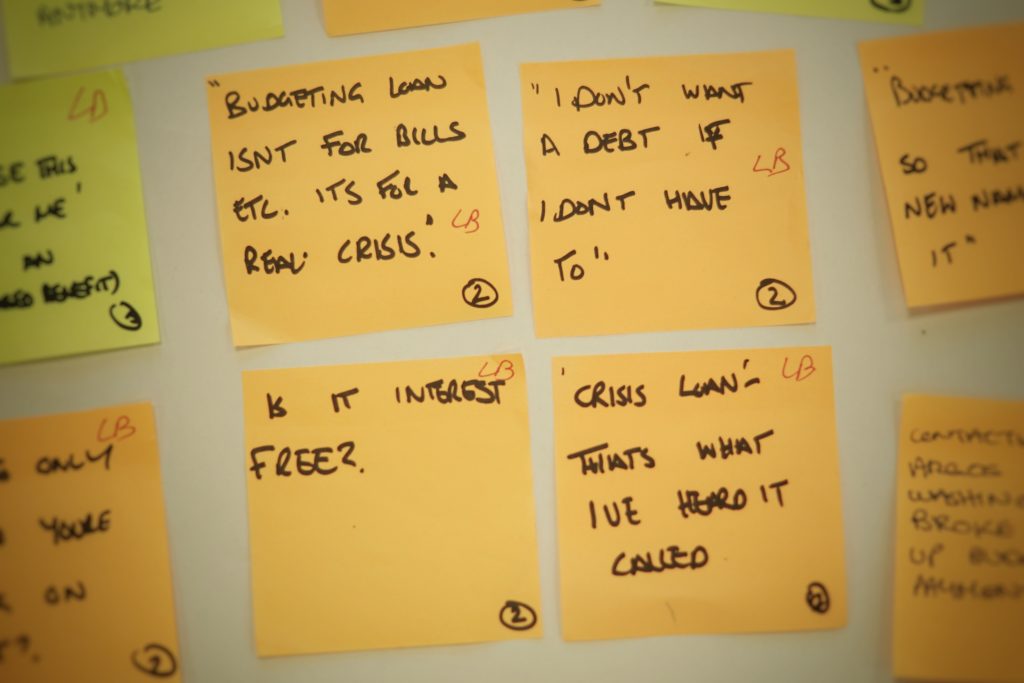 ANYMORE
LB
SE THIS
ME'
AN
BENEFIT)
3
"BUDGETING LOAN
ISNT FOR BILLS
ETC. ITS FOR A
REAL CRISIS."
LB
2
"I DON'T WANT
A DEBT IF
LB
I DONT HAVE
TO"
2
"BUDGETING
SO THAT
NEW NAM
IT"
LB
ONLY
YOURE
ON
?.
2
LB
IS IT INTEREST
FREE?.
2
LB
'CRISIS LOAN'-
THATS WHAT
I'VE HEARD IT
CALLED
2
CONTACT
ARGOS
WASHING
BROKE
UP